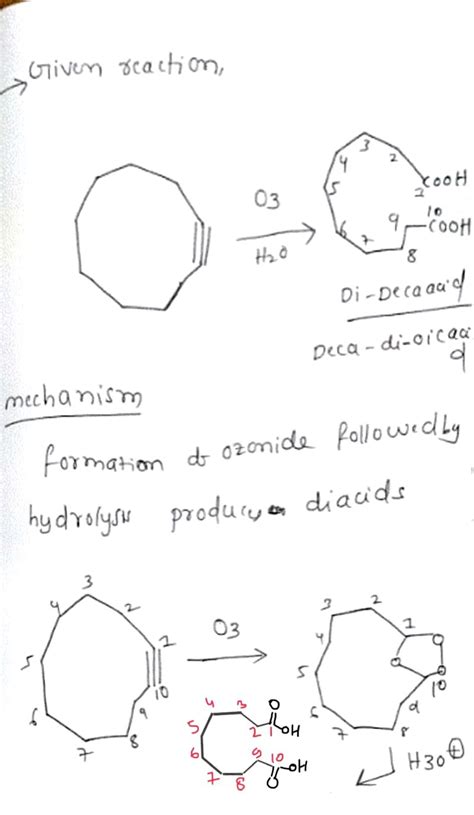 Given reaction,
O3
H2O
3
2
4
5
COOH
1
10
9
COOH
6
7
8
Di-Decaacid
Deca-di-oicacid
mechanism
formation of ozonide followed by
hydrolysis produces diacids
3
4
2
5
1
10
6
9
7
8
O3
3
2
4
1
O
5
O
O
10
6
9
7
8
H3O⊕
4
3
O
5
2
1
OH
6
9
10
OH
7
8
O